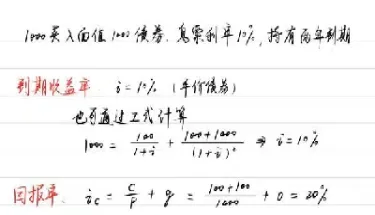 1000买入面值1000债券. 息票利率10%, 持有两年到期
到期收益率 i=10% (平价债券)
也可通过公式计算
1000 = 100/(1+i) + (100+1000)/(1+i)² ⇒ i=10%
回报率. i_c = C/P + g = (100+100)/1000 + 0 = 20%